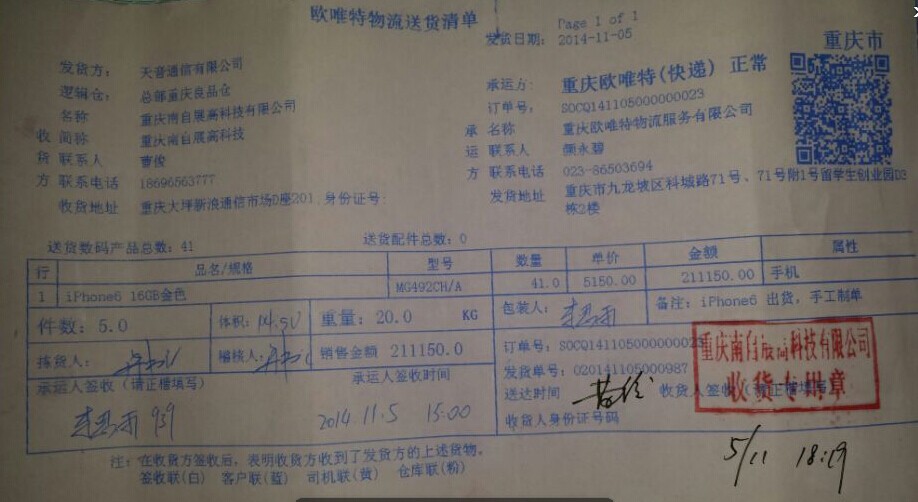 欧唯特物流送货清单
Page 1 of 1
发货日期: 2014-11-05
重庆市
发货方: 天音通信有限公司
逻辑仓: 总部重庆良品仓
名称 重庆南自展高科技有限公司
收 简称 重庆南自展高科技
货 联系人 曹俊
方 联系电话 18696563777
收货地址 重庆大坪新浪通信市场D座201 身份证号:
承运方: 重庆欧唯特(快递) 正常
订单号: SOCQ141105000000023
承 名称 重庆欧唯特物流服务有限公司
运 联系人 颜永碧
方 联系电话 023-86503694
发货地址 重庆市九龙坡区科城路71号、71号附1号留学生创业园D3
栋2楼
送货数码产品总数: 41 送货配件总数: 0
行 品名/规格 型号 数量 单价 金额 属性
1 iPhone6 16GB金色 MG492CH/A 41.0 5150.00 211150.00 手机
件数: 5.0 体积: 重量: 20.0 KG 包装人: 备注: iPhone6 出货, 手工制单
拣货人: 稽核人: 销售金额 211150.0
订单号: SOCQ141105000000023
发货单号: 020141105000987
承运人签收 (请正楷填写) 承运人签收时间
2014.11.5 15:00
送达时间 收货人签收
收货人身份证号码
重庆南自展高科技有限公司
收货专用章
5/11 18:19
注: 在收货方签收后, 表明收货方收到了发货方的上述货物。
签收联(白) 客户联(蓝) 司机联(黄) 仓库联(粉)